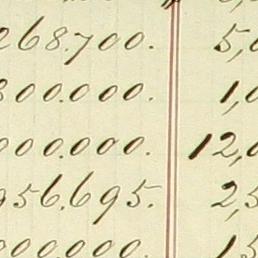 268.700. 5,0
800.000. 1,0
00.000. 12,0
956.695. 2,5
00.000. 15